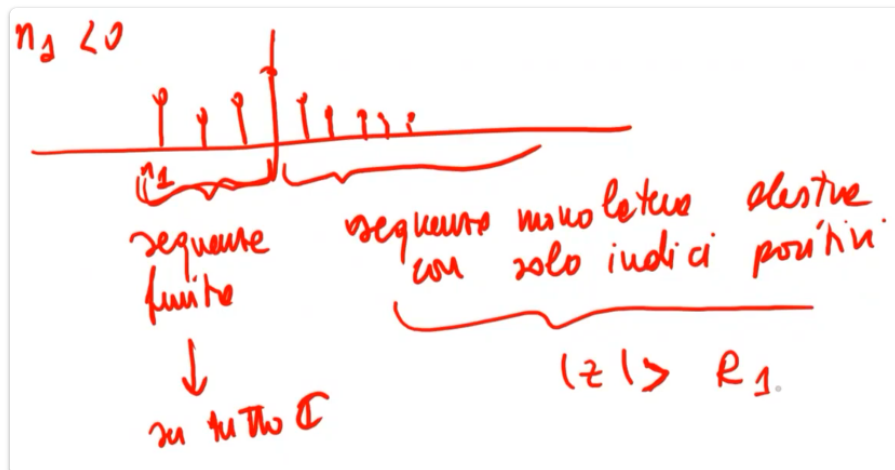 n₁ < 0
n₁
sequenza
finita
su tutto ℂ
sequenza monolatera destra
con solo indici positivi
|z| > R₁